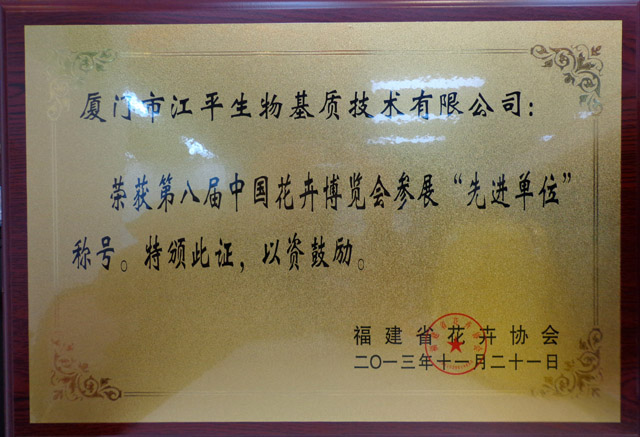 厦门市江平生物基质技术有限公司：
荣获第八届中国花卉博览会参展“先进单位”
称号。特颁此证，以资鼓励。
福建省花卉协会
二〇一三年十一月二十一日